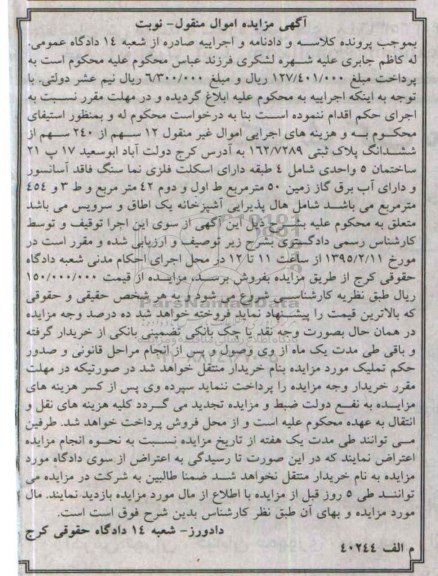 آگهی مزایده اموال منقول- نوبت
بموجب پرونده کلاسه و دادنامه و اجراییه صادره از شعبه ۱۴ دادگاه عمومی،
له کاظم جابری علیه شهره لشگری فرزند عباس محکوم علیه محکوم است به
پرداخت مبلغ ۱۲۷/۴۰۱/۰۰۰ ریال و مبلغ ۶/۳۰۰/۰۰۰ ریال نیم عشر دولتی. با
توجه به اینکه اجراییه به محکوم علیه ابلاغ گردیده و در مهلت مقرر نسبت به
اجرای حکم اقدام ننموده است بنا به درخواست محکوم له و بمنظور استیفای
محکوم به و هزینه های اجرایی اموال غیر منقول ۱۲ سهم از ۲۴۰ سهم از
ششدانگ پلاک ثبتی ۱۶۲/۷۲۸۹ به آدرس کرج دولت آباد ابوسعید ۱۷ پ ۲۱
ساختمان ۵ واحدی شامل ۴ طبقه دارای اسکلت فلزی نما سنگ فاقد آسانسور
و دارای آب برق گاز زمین ۵۰ مترمربع ط اول و دوم ۴۲ متر مربع و ط ۳ و ۴ ۴۵
مترمربع می باشد شامل هال پذیرایی آشپزخانه یک اطاق و سرویس می باشد
متعلق به محکوم علیه بشرح ذیل این آگهی از سوی این اجرا توقیف و توسط
کارشناس رسمی دادگستری بشرح زیر توصیف و ارزیابی شده و مقرر است در
مورخ ۱۳۹۵/۲/۱۱ از ساعت ۱۱ تا ۱۲ در محل اجرای احکام مدنی شعبه دادگاه
حقوقی کرج از طریق مزایده بفروش برسد، مزایده از قیمت ۱۵۰/۰۰۰/۰۰۰
ریال طبق نظریه کارشناسی شروع می شود و به هر شخص حقیقی و حقوقی
که بالاترین قیمت را پیشنهاد نماید فروخته خواهد شد ده درصد وجه مزایده
در همان حال بصورت وجه نقد یا چک بانکی تضمینی بانکی از خریدار گرفته
و باقی طی مدت یک ماه از وی وصول و پس از انجام مراحل قانونی و صدور
حکم تملیک مورد مزایده بنام خریدار منتقل خواهد شد در صورتیکه در مهلت
مقرر خریدار وجه مزایده را پرداخت ننماید سپرده وی پس از کسر هزینه های
مزایده به نفع دولت ضبط و مزایده تجدید می گردد کلیه هزینه های نقل و
انتقال به عهده محکوم علیه است و از محل فروش پرداخت خواهد شد. طرفین
می توانند طی مدت یک هفته از تاریخ مزایده نسبت به نحوه انجام مزایده
اعتراض نمایند که در این صورت تا رسیدگی به اعتراض از سوی دادگاه مورد
مزایده به نام خریدار منتقل نخواهد شد ضمنا طالبین به شرکت در مزایده می
توانند طی ۵ روز قبل از مزایده با اطلاع از مال مورد مزایده بازدید نمایند. مال
مورد مزایده و بهای آن طبق نظر کارشناس بدین شرح فوق است است.
دادورز- شعبه ۱۴ دادگاه حقوقی کرج
م الف ۴۰۲۴۴